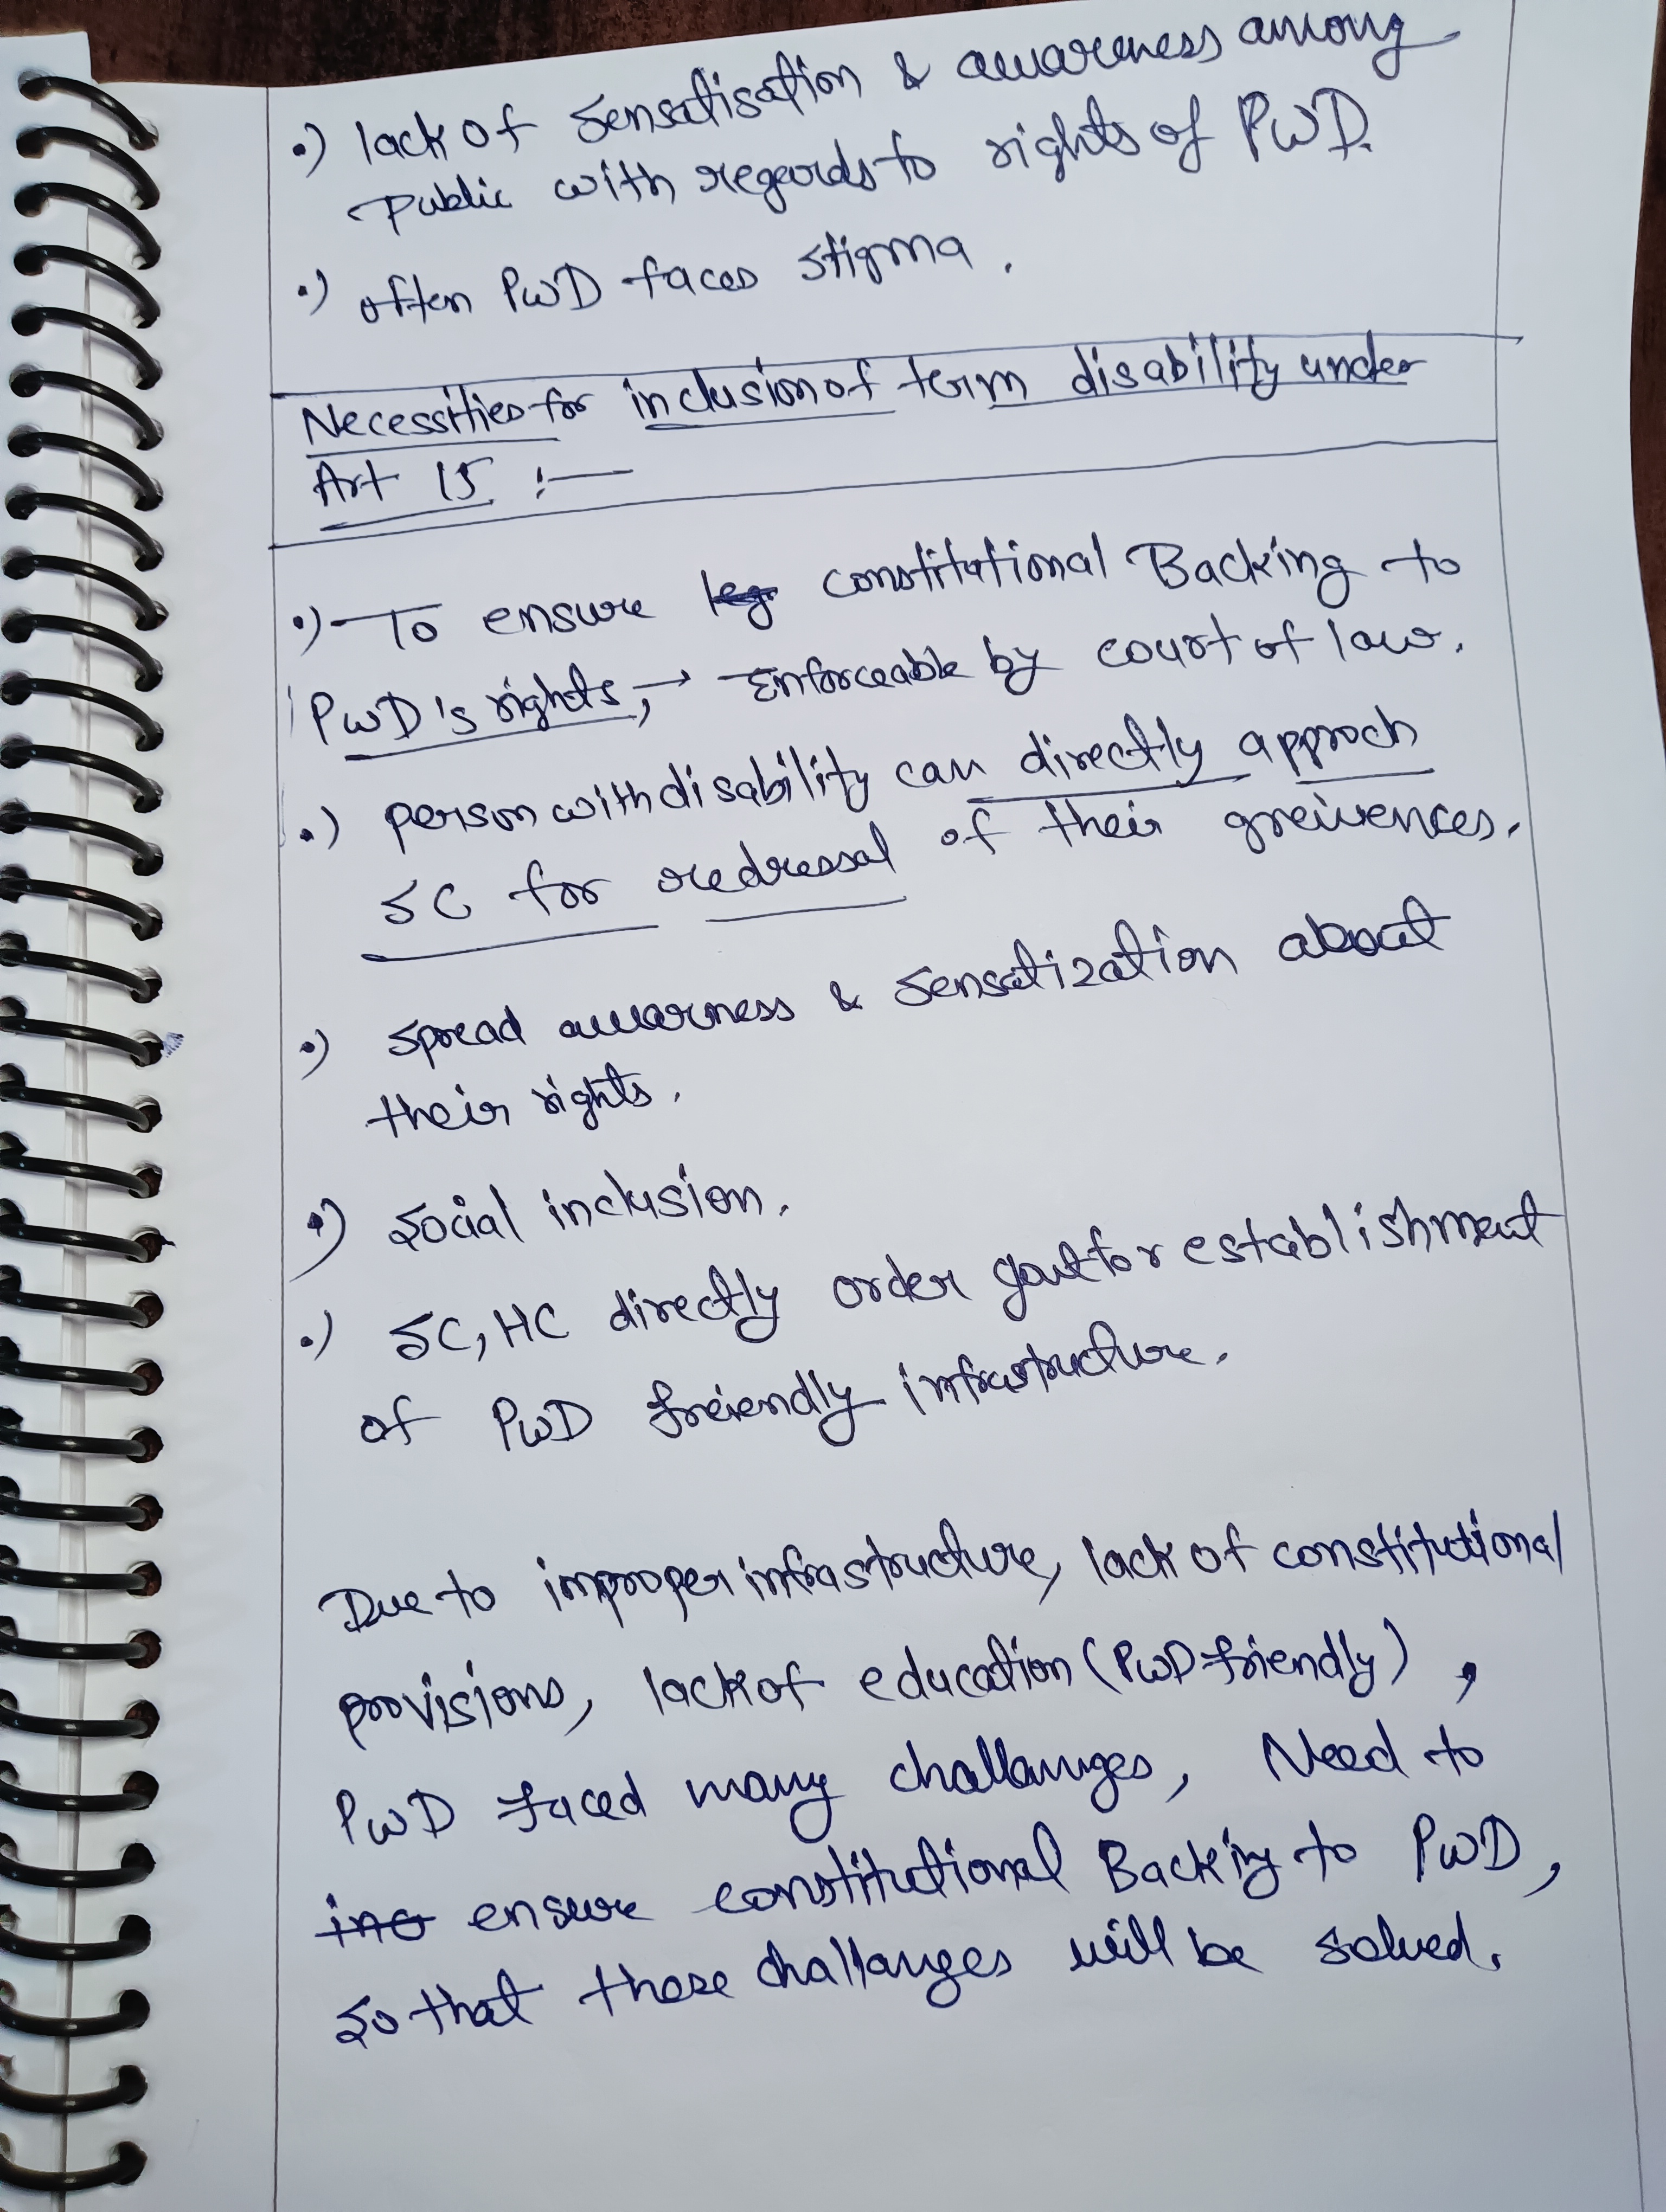 •) lack of sensatisation & awareness among
public with regards to rights of PWD.
•) often PWD faces stigma.
Necessities for inclusion of term disability under
Art 15 :—
•) To ensure leg constitutional Backing to
PWD's rights, → Enforceable by court of law.
•) person with disability can directly approch
SC for redressal of their greivences.
•) spread awarness & sensatization about
their rights.
•) social inclusion.
•) SC, HC directly order govt for establishment
of PWD freiendly infrastructure.
Due to improper infrastructure, lack of constitutional
provisions, lack of education (PWD friendly),
PWD faced many challanges, Need to
ino ensure constitutional Backing to PWD,
so that these challanges will be solved.